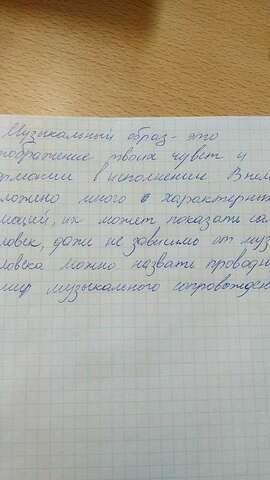 Музыкальный образ - это
ображение твоих чувст и
в исполнении В нем
ложено много характерных
моций, их может показать сам
ловек, даже не зависимо от муз
ловека можно назвать проводн
мир музыкального сопровожден